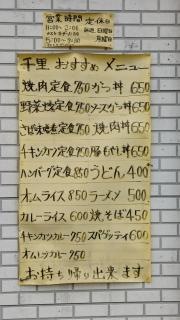 営業時間 定休日
11:00~2:00
5:00~9:00 月曜日
千里 おすすめ メニュー
焼肉定食 750 かつ丼 650
野菜炒定食 750 ソースかつ丼 650
さば塩焼定食 750 焼肉丼 650
チキンカツ定食 750 豚もやし丼 650
ハンバーグ定食 850 うどん 400
オムライス 850 ラーメン 500
カレーライス 600 焼そば 450
チキンカツカレー 950 スパゲッティ 600
オムレツカレー 950
お持ち帰り出来ます